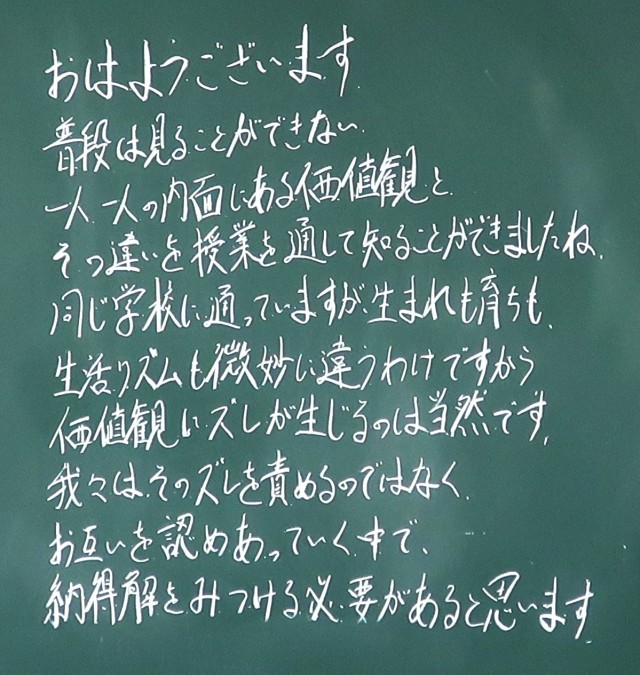 おはようございます
普段は見ることができない
一人一人の内面にある価値観と
その違いを授業を通して知ることができましたね。
同じ学校に通っていますが生まれも育ちも、
生活リズムも微妙に違うわけですから
価値観にズレが生じるのは当然です。
我々はそのズレを責めるのではなく
お互いを認めあっていく中で、
納得解をみつける必要があると思います